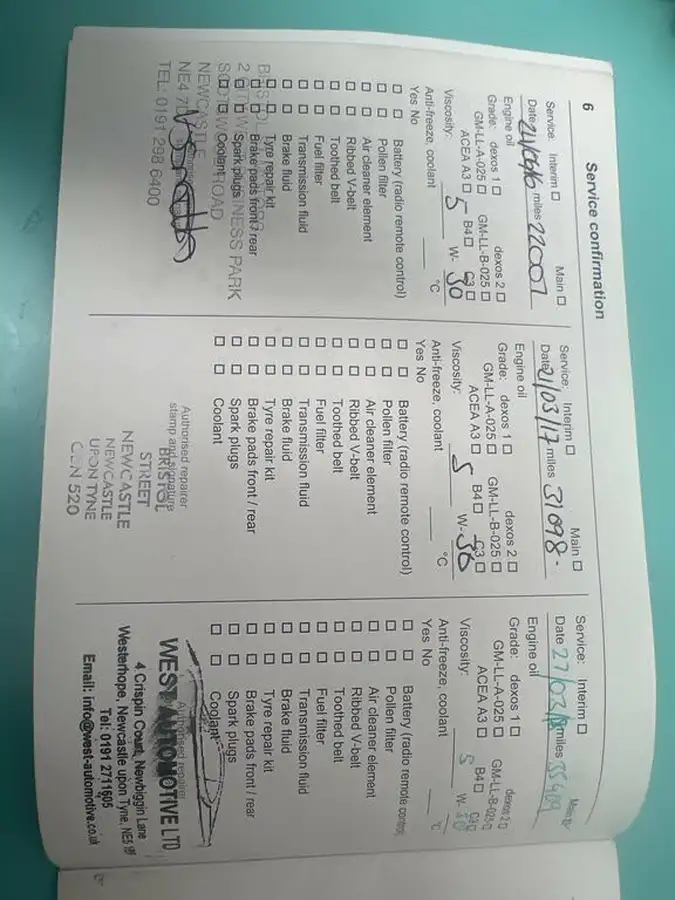 6
Service confirmation
Service: Interim ☐ Main ☐
Date 24/03/16 miles 22007
Engine oil
Grade: dexos 1 ☐ dexos 2 ☐
GM-LL-A-025 ☐ GM-LL-B-025 ☐
ACEA A3 ☐ B4 ☐ C3 ☐
Viscosity: 5 W- 30
Anti-freeze, coolant °C
Yes No
☐ ☐ Battery (radio remote control)
☐ ☐ Pollen filter
☐ ☐ Air cleaner element
☐ ☐ Ribbed V-belt
☐ ☐ Toothed belt
☐ ☐ Fuel filter
☐ ☐ Transmission fluid
☐ ☐ Brake fluid
☐ ☐ Tyre repair kit
☐ ☐ Brake pads front / rear
☐ ☐ Spark plugs
☐ ☐ Coolant
BUSINESS PARK
ROAD
NEWCASTLE
NE4 7
TEL: 0191 298 6400
Service: Interim ☐ Main ☐
Date 21/03/17 miles 31098-
Engine oil
Grade: dexos 1 ☐ dexos 2 ☐
GM-LL-A-025 ☐ GM-LL-B-025 ☐
ACEA A3 ☐ B4 ☐ C3 ☐
Viscosity: 5 W- 30
Anti-freeze, coolant °C
Yes No
☐ ☐ Battery (radio remote control)
☐ ☐ Pollen filter
☐ ☐ Air cleaner element
☐ ☐ Ribbed V-belt
☐ ☐ Toothed belt
☐ ☐ Fuel filter
☐ ☐ Transmission fluid
☐ ☐ Brake fluid
☐ ☐ Tyre repair kit
☐ ☐ Brake pads front / rear
☐ ☐ Spark plugs
☐ ☐ Coolant
Authorised repairer
stamp and signature
BRISTOL
STREET
NEWCASTLE
NEWCASTLE
UPON TYNE
520
Service: Interim ☐ Main
Date 27/03/18 miles 35409
Engine oil
Grade: dexos 1 ☐ dexos 2 ☐
GM-LL-A-025 ☐ GM-LL-B-025 ☐
ACEA A3 ☐ B4 ☐ C3 ☐
Viscosity: 5 W- 30
Anti-freeze, coolant °C
Yes No
☐ ☐ Battery (radio remote control)
☐ ☐ Pollen filter
☐ ☐ Air cleaner element
☐ ☐ Ribbed V-belt
☐ ☐ Toothed belt
☐ ☐ Fuel filter
☐ ☐ Transmission fluid
☐ ☐ Brake fluid
☐ ☐ Tyre repair kit
☐ ☐ Brake pads front / rear
☐ ☐ Spark plugs
☐ ☐ Coolant
Authorised repairer
WEST AUTOMOTIVE LTD
4 Crispin Court, Newbiggin Lane
Westerhope, Newcastle upon Tyne, NE5 1BF
Tel: 0191 2711605
Email: info@west-automotive.co.uk